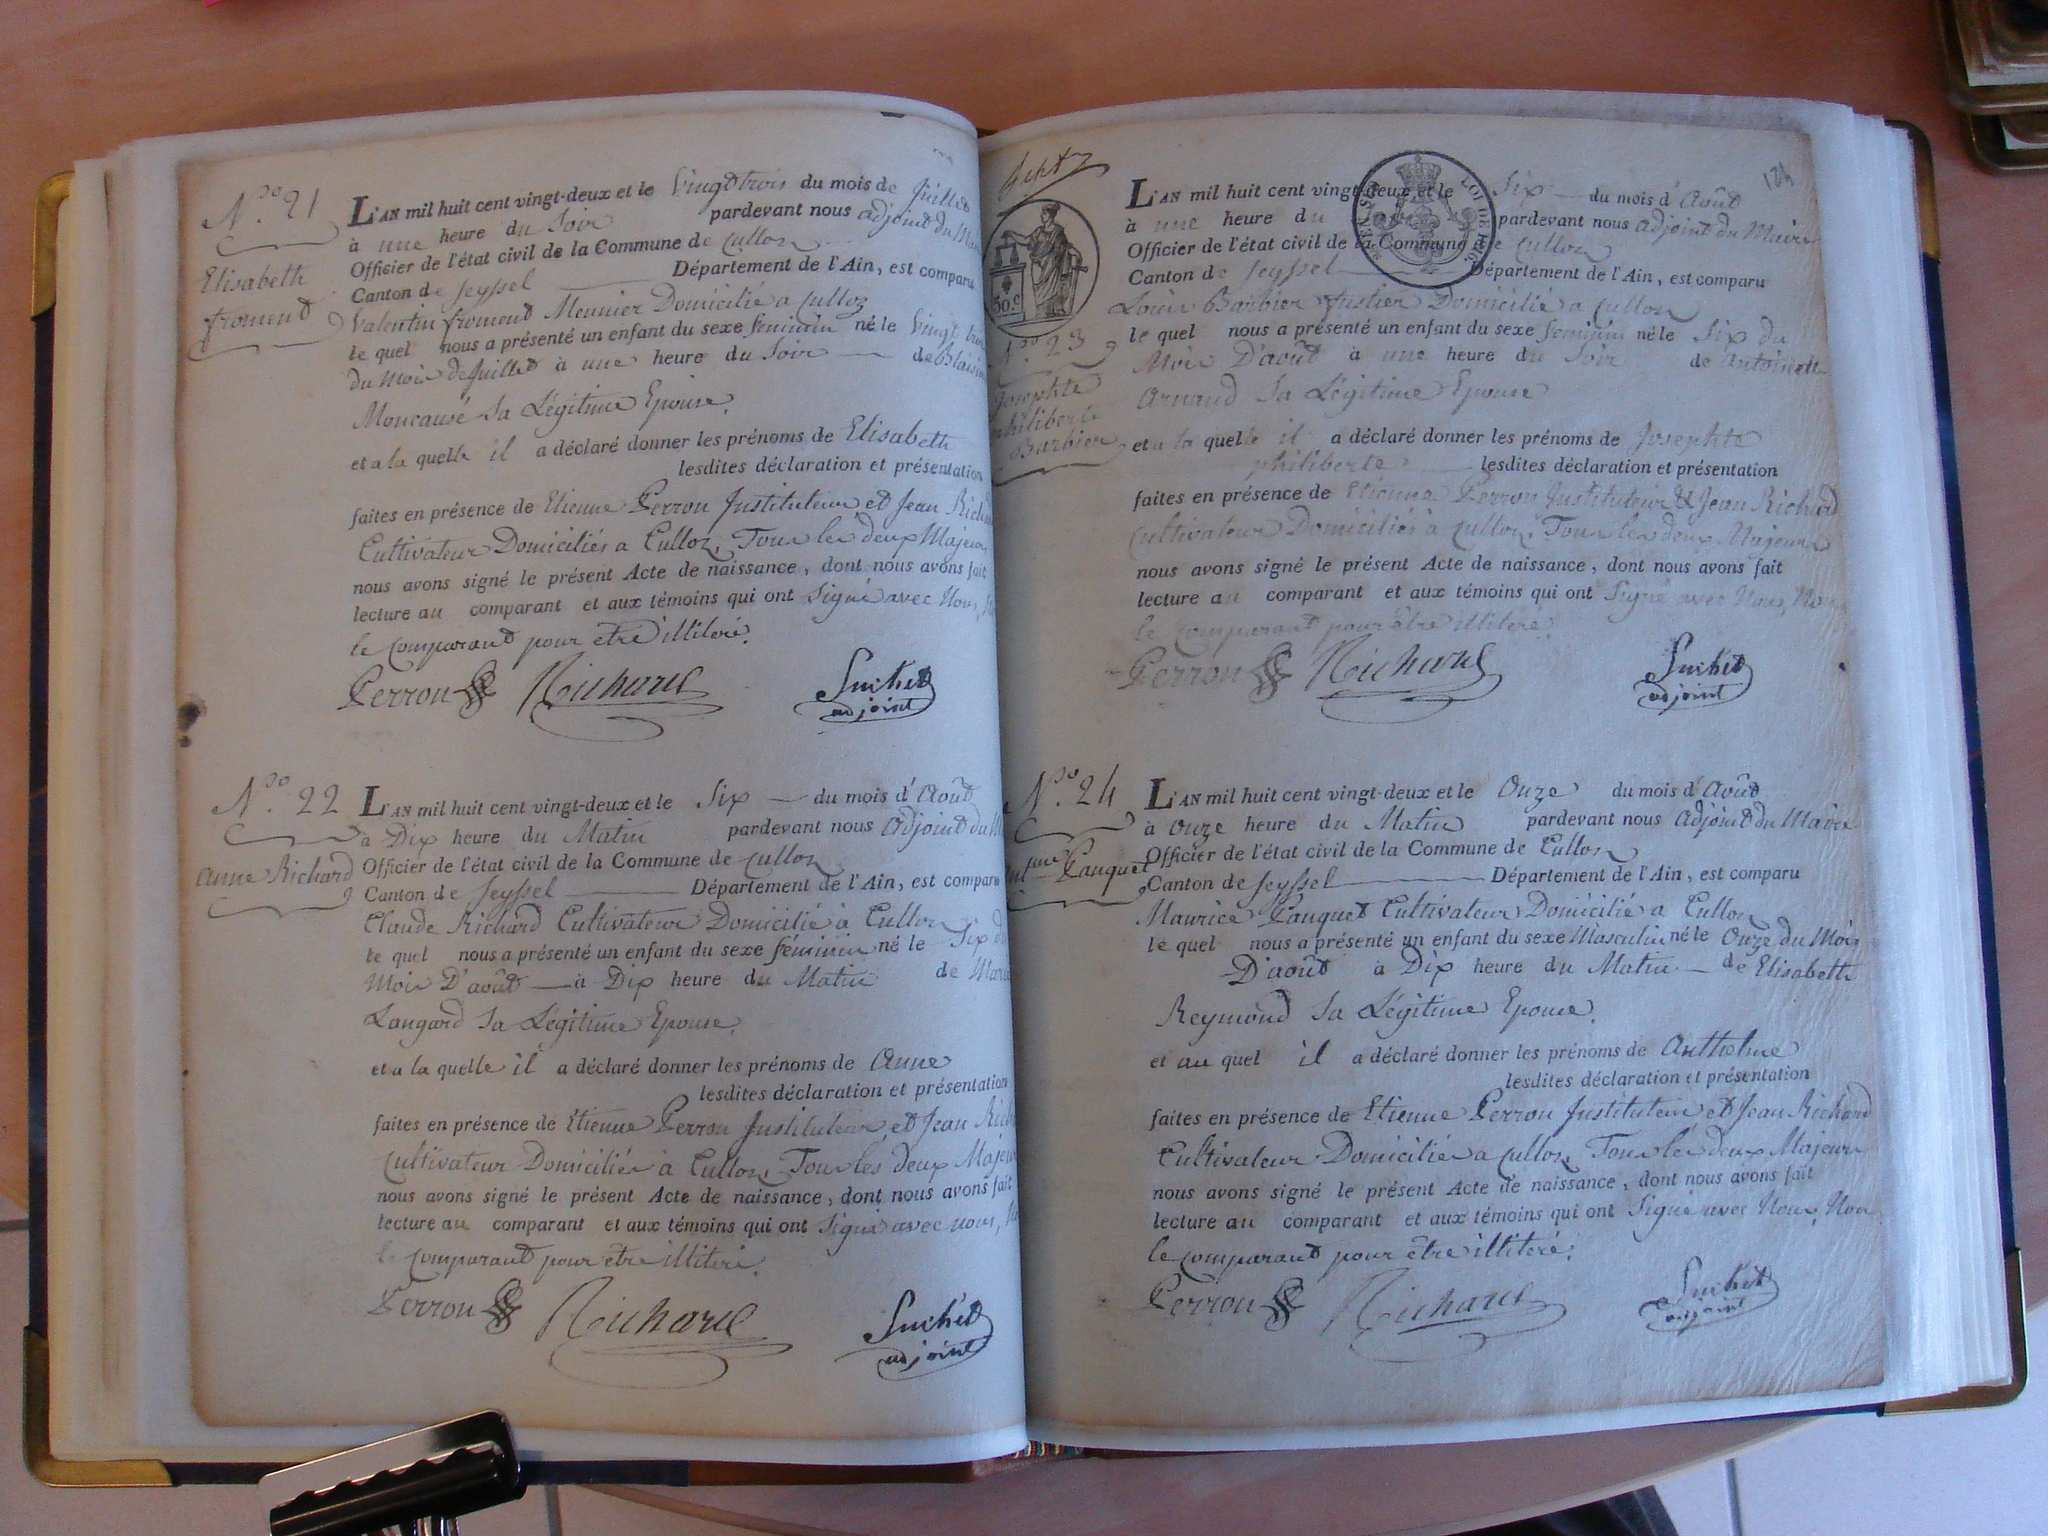 N.ro 21
Elisabeth
froment
L'AN mil huit cent vingt-deux et le Vingt trois du mois de Juillet
à une heure du Soir pardevant nous adjoint du
Officier de l'état civil de la Commune de Culloz
Canton de Seyssel Département de l'Ain, est comparu
Valentin froment Meunier Domicilié a Culloz
le quel nous a présenté un enfant du sexe feminin né le Vingt
du Mois de Juillet à une heure du Soir de
Moncausé Sa Légitime Epouse.
et a la quelle il a déclaré donner les prénoms de Elisabeth
lesdites déclaration et présentation
faites en présence de Etienne Perrou Instituteur et Jean
Cultivateur Domiciliés a Culloz, Tous les deux Majeurs
nous avons signé le présent Acte de naissance, dont nous avons fait
lecture au comparant et aux témoins qui ont Signé avec Nous,
le Comparant pour être illiteré.
Perrou Richard Suchet
adjoint
N.ro 22
Anne Richard
L'AN mil huit cent vingt-deux et le Six du mois d'Août
à Dix heure du Matin pardevant nous Adjoint du
Officier de l'état civil de la Commune de Culloz
Canton de Seyssel Département de l'Ain, est comparu
Claude Richard Cultivateur Domicilié à Culloz
le quel nous a présenté un enfant du sexe féminin né le Six du
Mois D'août à Dix heure du Matin de
Langard Sa Légitime Epouse.
et a la quelle il a déclaré donner les prénoms de Anne
lesdites déclaration et présentation
faites en présence de Etienne Perrou Instituteur, et Jean
Cultivateur Domiciliés à Culloz, Tous les deux
nous avons signé le présent Acte de naissance, dont nous avons fait
lecture au comparant et aux témoins qui ont Signé avec nous,
le Comparant pour être illiteré.
Perrou Richard Suchet
adjoint
124
50.c
LOI DE
N.ro 23
Josephte
philiberte
Barbier
L'AN mil huit cent vingt-deux et le Six du mois d'Août
à une heure du pardevant nous adjoint du Maire
Officier de l'état civil de la Commune de Culloz
Canton de Seyssel Département de l'Ain, est comparu
Louis Barbier Domicilié a Culloz
le quel nous a présenté un enfant du sexe feminin né le Six du
Mois D'août à une heure du Soir de Antoinette
Arnaud Sa Légitime Epouse
et a la quelle il a déclaré donner les prénoms de Josephte
philiberte lesdites déclaration et présentation
faites en présence de Etienne Perrou Instituteur & Jean Richard
Cultivateur Domiciliés à Culloz, Tous les deux Majeurs
nous avons signé le présent Acte de naissance, dont nous avons fait
lecture au comparant et aux témoins qui ont Signé avec Nous,
le Comparant pour être illiteré.
Perrou Richard Suchet
adjoint
N.ro 24
Pauquet
L'AN mil huit cent vingt-deux et le Onze du mois d'Août
à Onze heure du Matin pardevant nous Adjoint du Maire
Officier de l'état civil de la Commune de Culloz
Canton de Seyssel Département de l'Ain, est comparu
Maurice Pauquet Cultivateur Domicilié a Culloz
le quel nous a présenté un enfant du sexe Masculin né le Onze du Mois
D'août à Dix heure du Matin de Elisabeth
Reymond Sa Légitime Epouse.
et au quel il a déclaré donner les prénoms de Anthelme
lesdites déclaration et présentation
faites en présence de Etienne Perrou Instituteur et Jean Richard
Cultivateur Domiciliés a Culloz, Tous les deux Majeurs
nous avons signé le présent Acte de naissance, dont nous avons fait
lecture au comparant et aux témoins qui ont Signé avec Nous, Non
le Comparant pour être illiteré.
Perrou Richard Suchet
adjoint